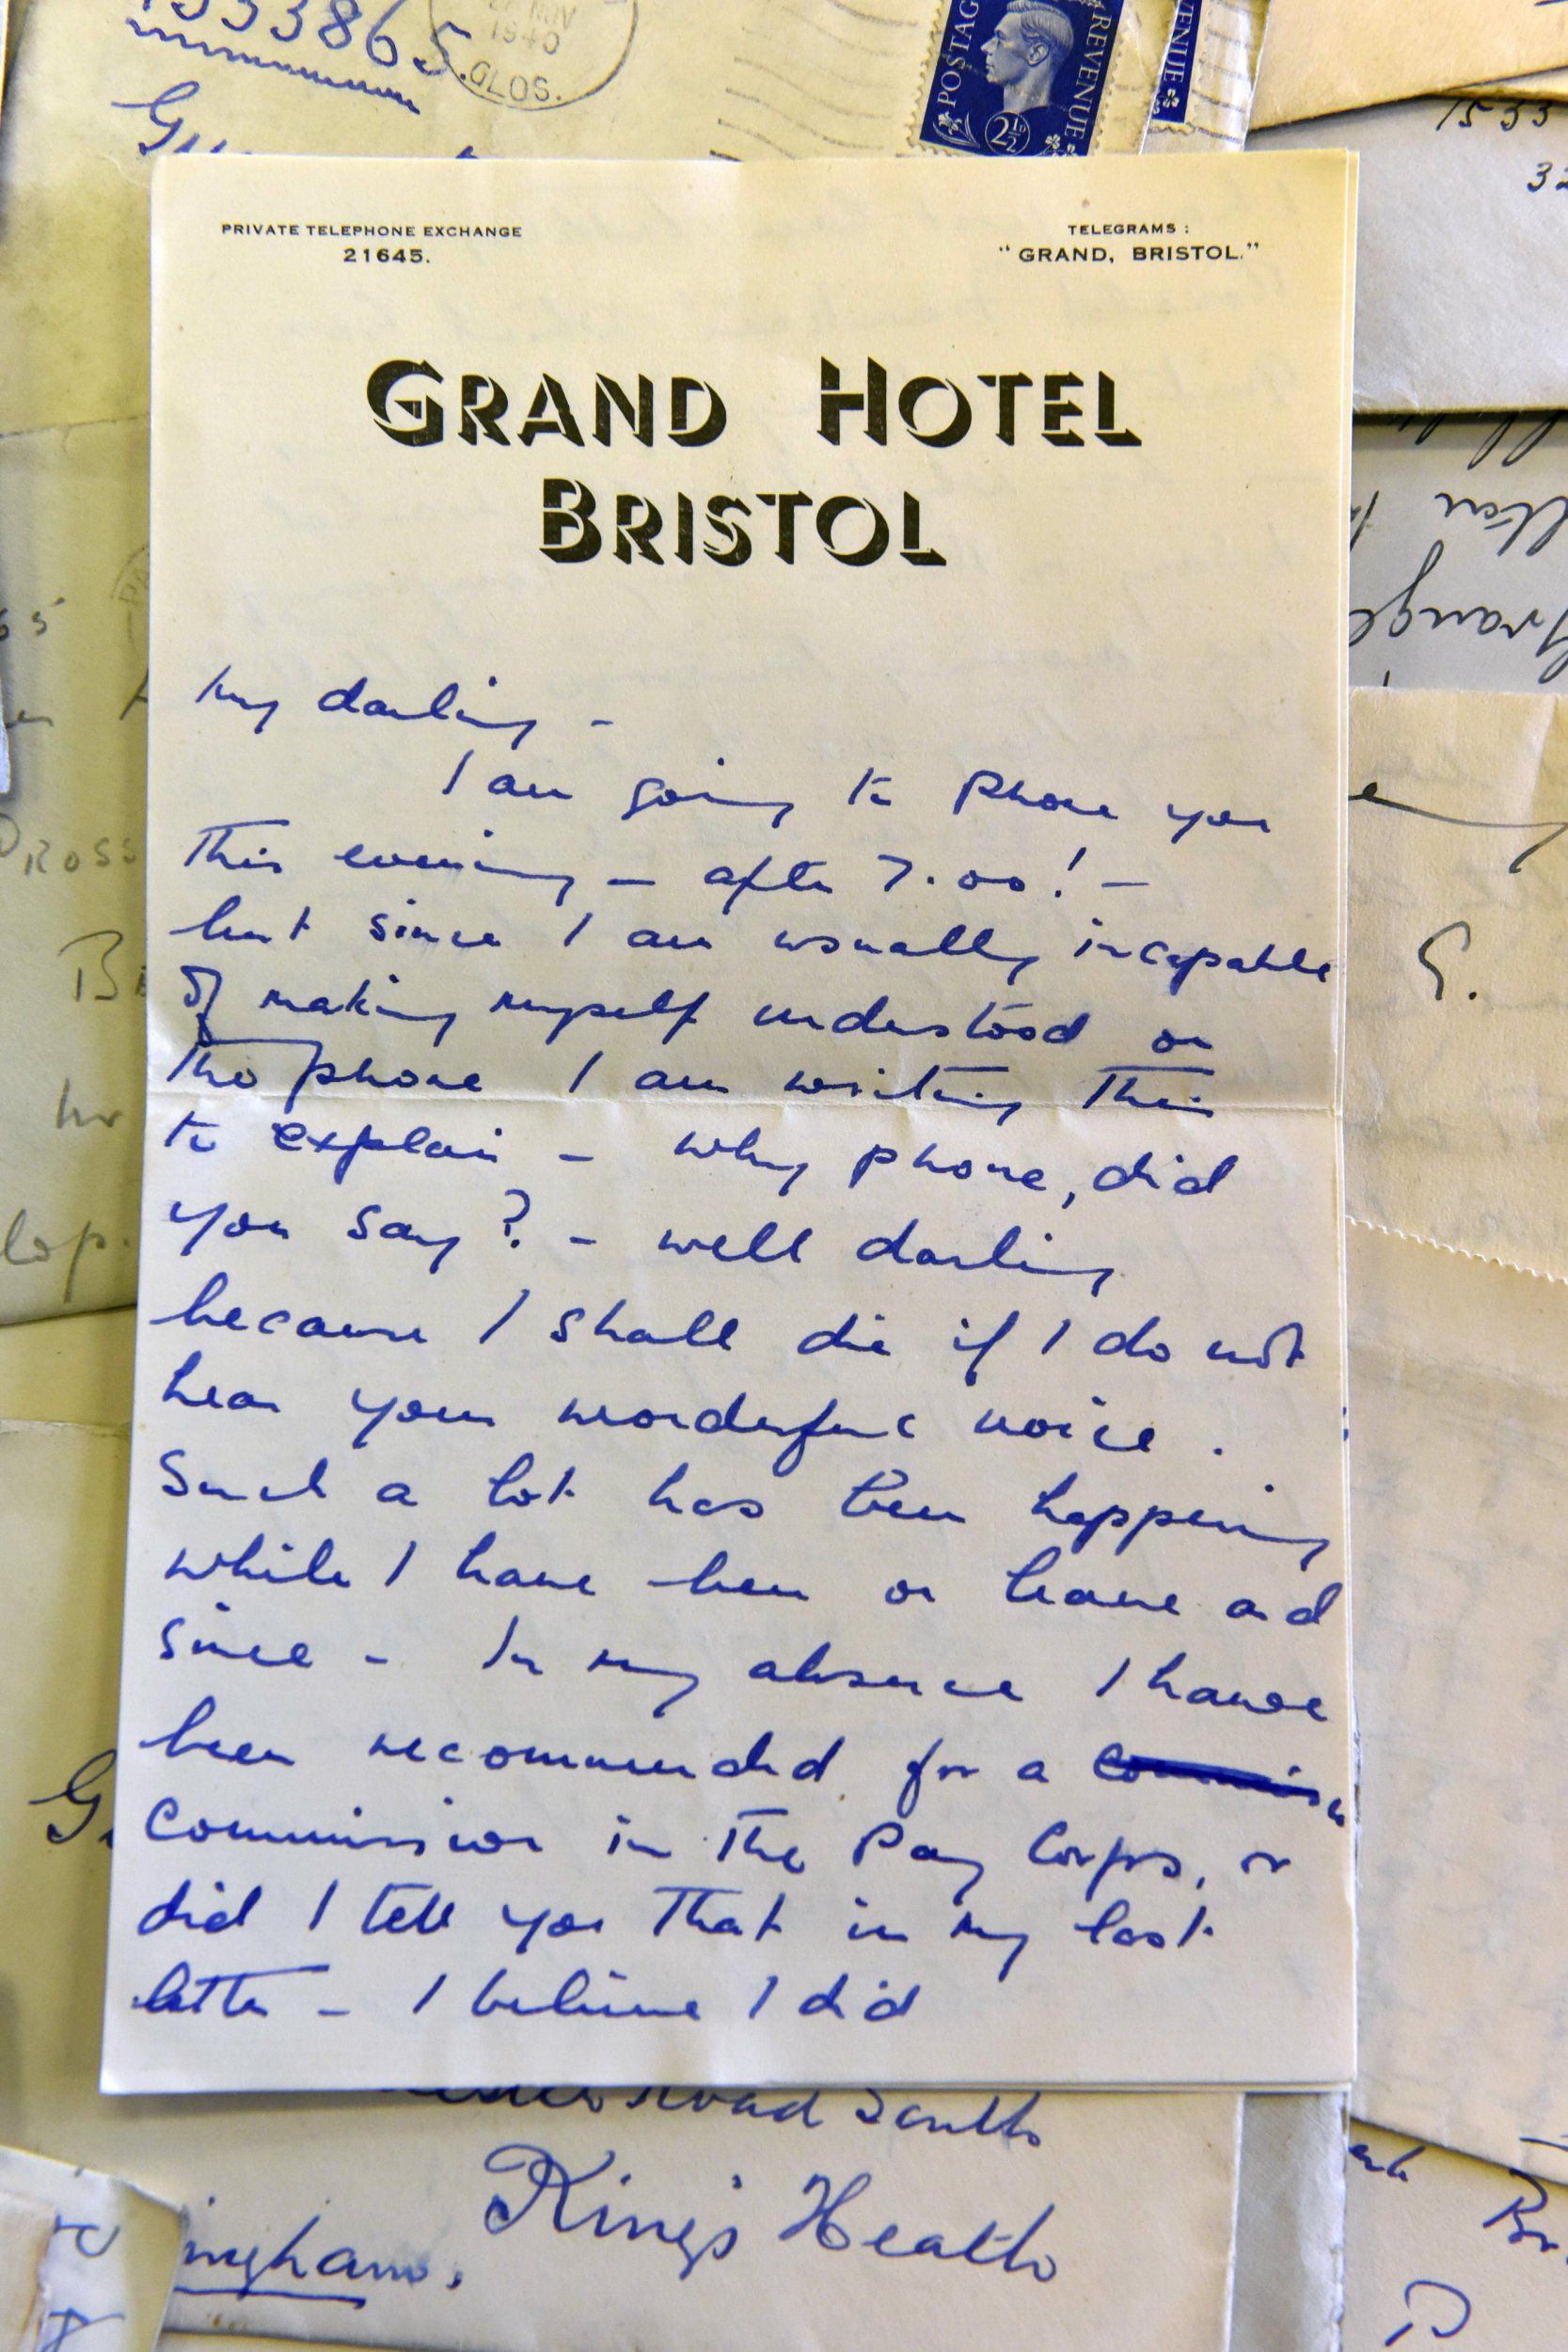 1533865.
1940
GLOS.
POSTAGE
REVENUE
2½
ENUE
1533
32
PRIVATE TELEPHONE EXCHANGE
21645.
TELEGRAMS :
"GRAND, BRISTOL."
GRAND HOTEL
BRISTOL
My darling -
I am going to phone you
this evening - after 7.00! -
but since I am usually incapable
of making myself understood on
the phone I am writing this
to explain - why phone, did
you say? - well darling
because I shall die if I do not
hear your wonderful voice.
Such a lot has been happening
while I have been on leave and
since - In my absence I have
been recommended for a
commission in the Pay Corps, or
did I tell you that in my last
letter - I believe I did
Road South
King's Heath
ingham.
ROSS
lop.
G.